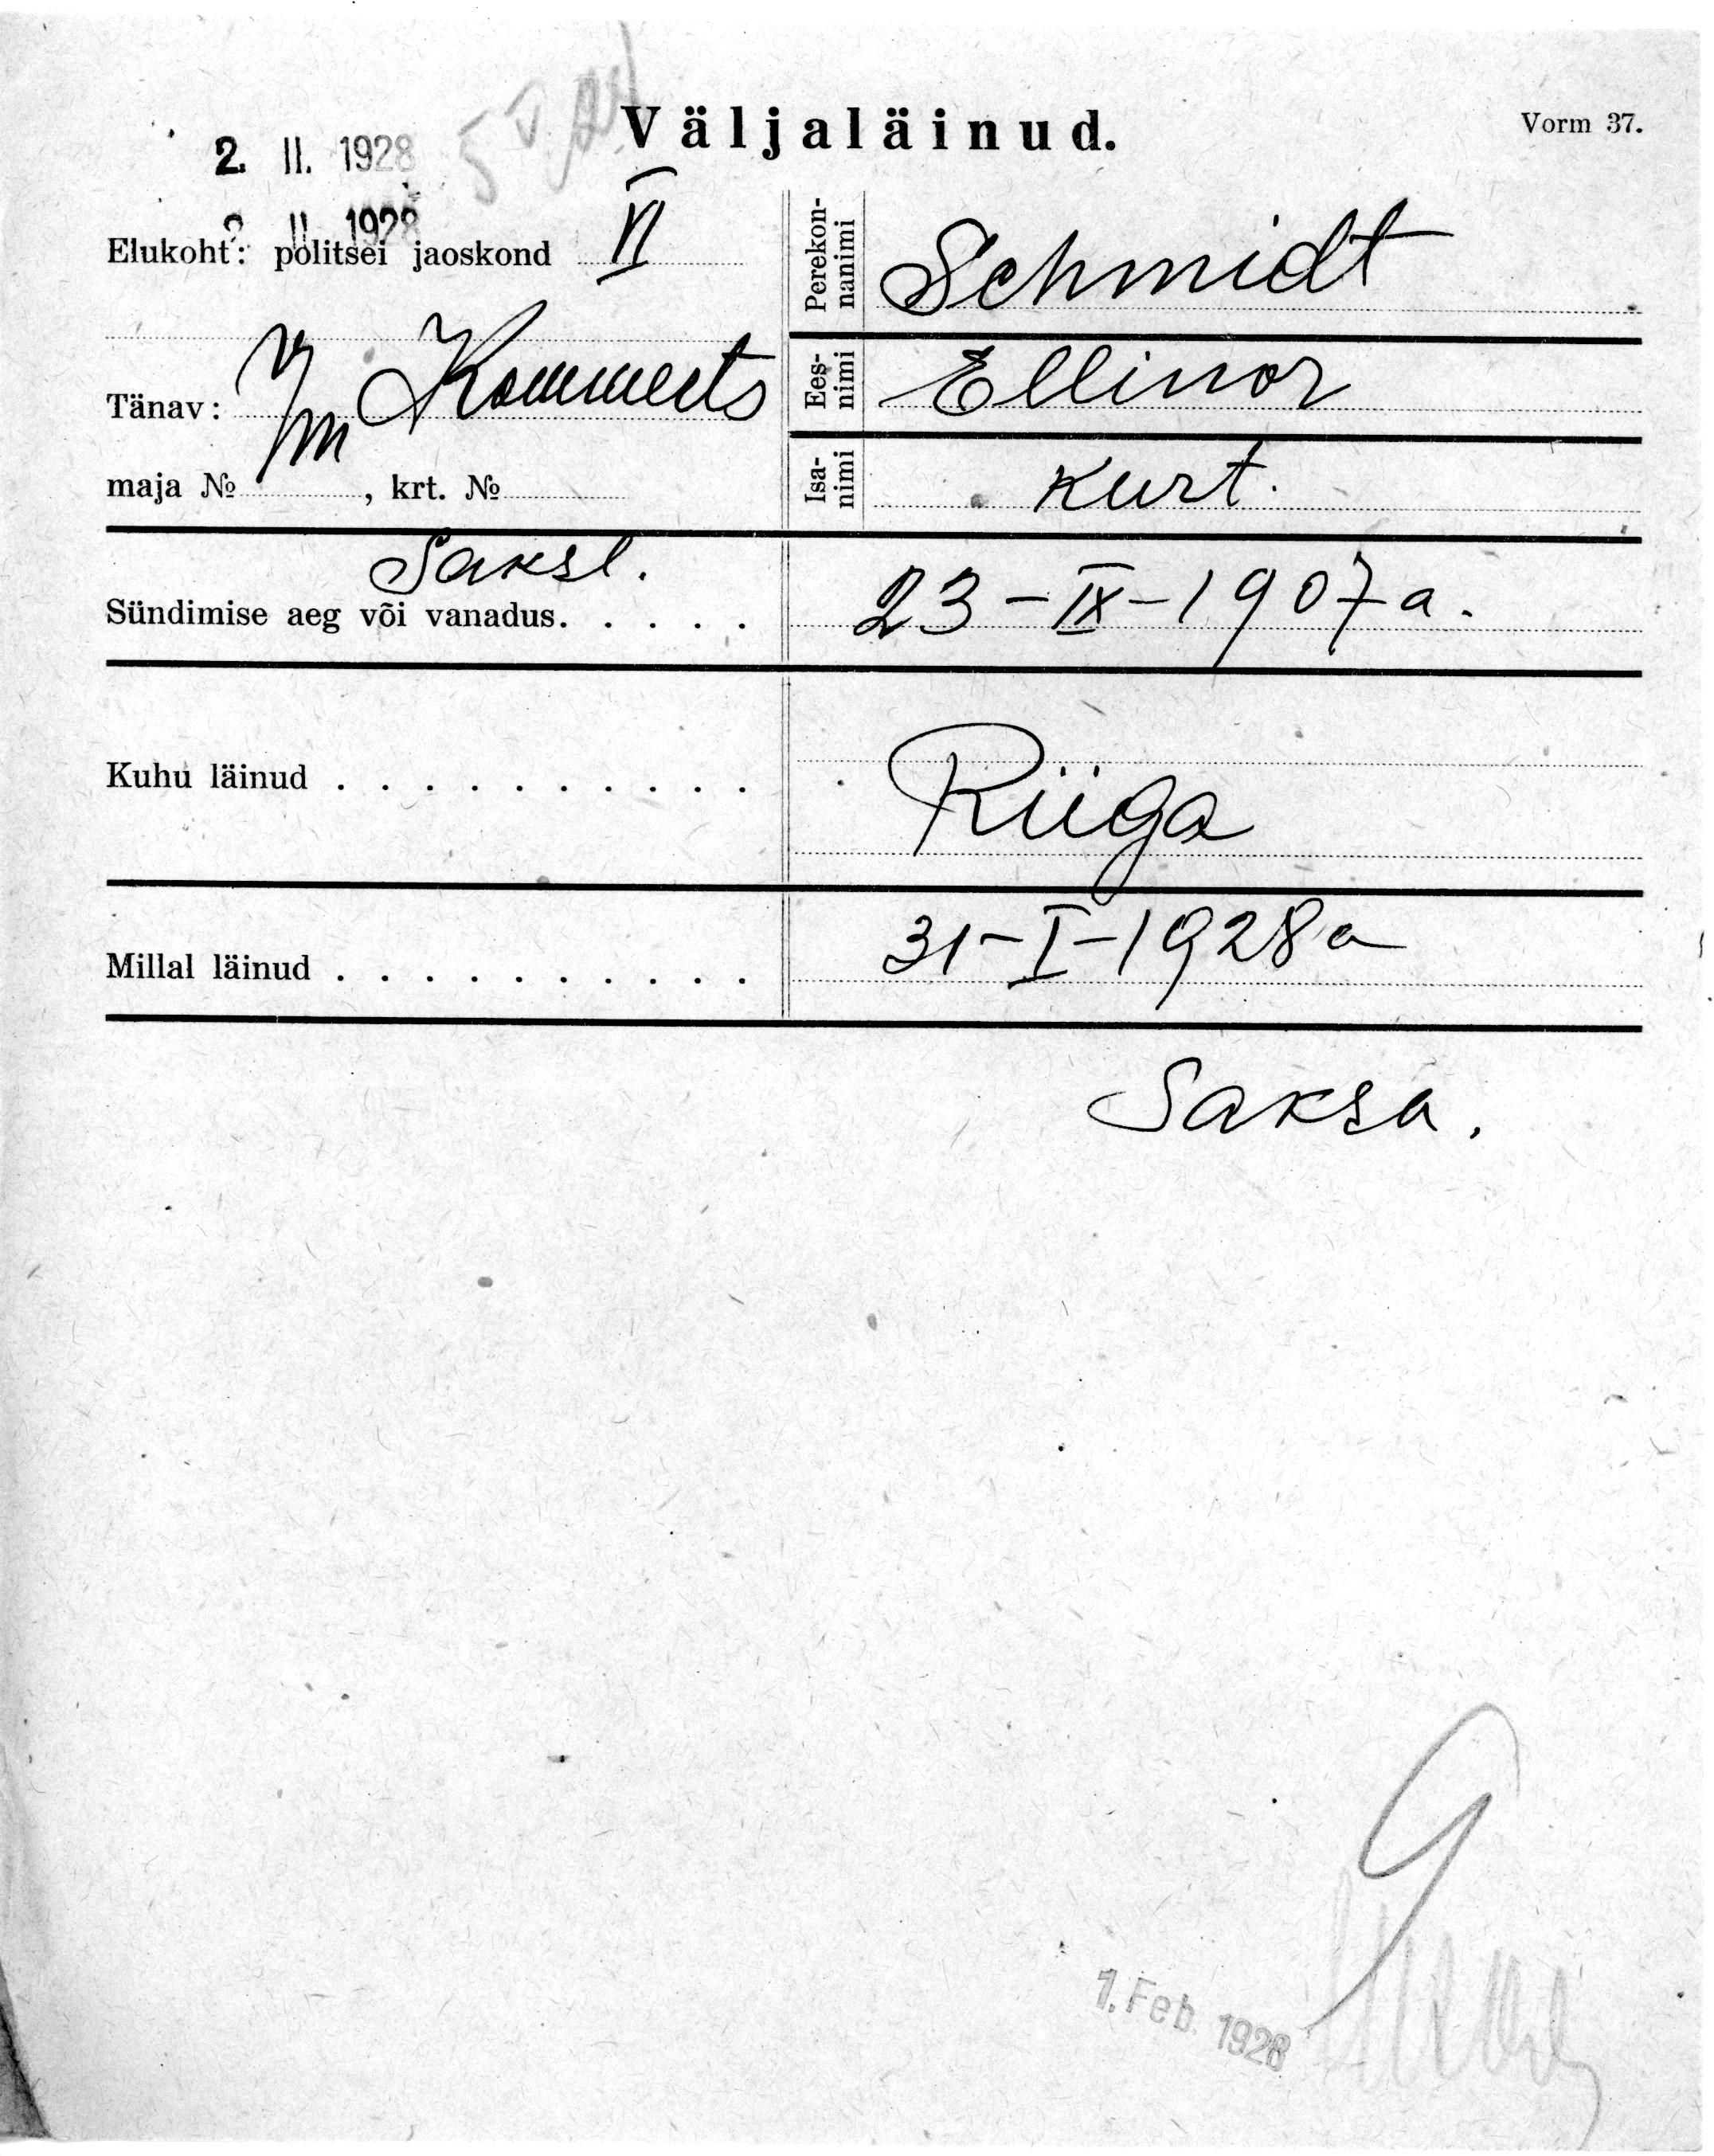 Väljaläinud.
Vorm 37.
2. II. 1928
2 II 1928
Elukoht: politsei jaoskond VI
Tänav: Kommerts
maja № , krt. №
Perekon-
nanimi
Schmidt
Ees-
nimi
Ellinor
Isa-
nimi
Kurt.
Saksl.
Sündimise aeg või vanadus. . . . . 23-IX-1907 a.
Kuhu läinud . . . . . . . . . . Riiga
Millal läinud . . . . . . . . . . 31-I-1928 a
Saksa.
1. Feb. 1928